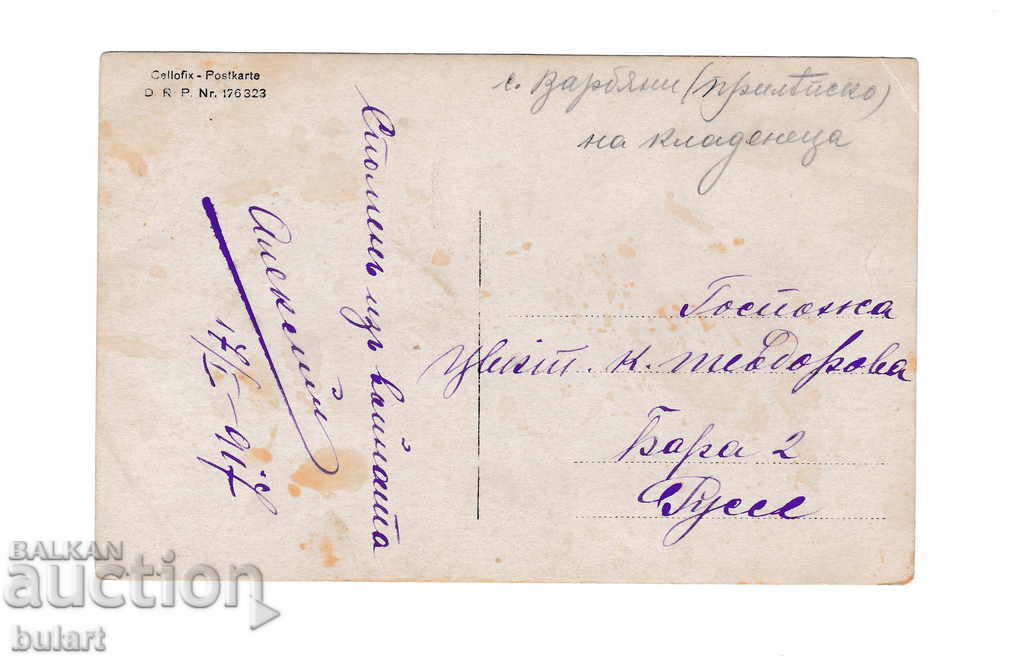 Cellofix - Postkarte
D. R. P. Nr. 176323
с. Варбяни (прилѣпско)
на кладенеца
Споменъ изъ войната
17/I - 917
Госпожа
Цвѣт. К. Теодорова
Бара 2
Русе
BALKAN
auction
bulart